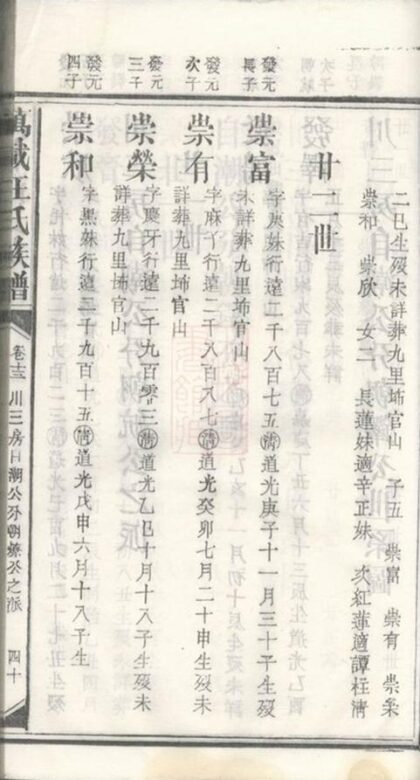 二巳生歿未詳葬九里坳官山　子五　崇富　崇有　崇榮
崇和　崇欣　女二　長蓮妹適辛正妹　次紅蓮適譚柱清
廿二世
發元長子
崇富
字庚妹行遠二千八百七五清道光庚子十一月三十子生歿
未詳葬九里坳官山
發元次子
崇有
字麻丫行遠二千八百八七清道光癸卯七月二十申生歿未
詳葬九里坳官山
發元三子
崇榮
字慶牙行遠二千九百零三清道光乙巳十月十八子生歿未
詳葬九里坳官山
發元四子
崇和
字黑妹行遠二千九百十五清道光戊申六月十八子生
萬載王氏族譜
卷十三　川三房自潮公分朝
公之派
四十